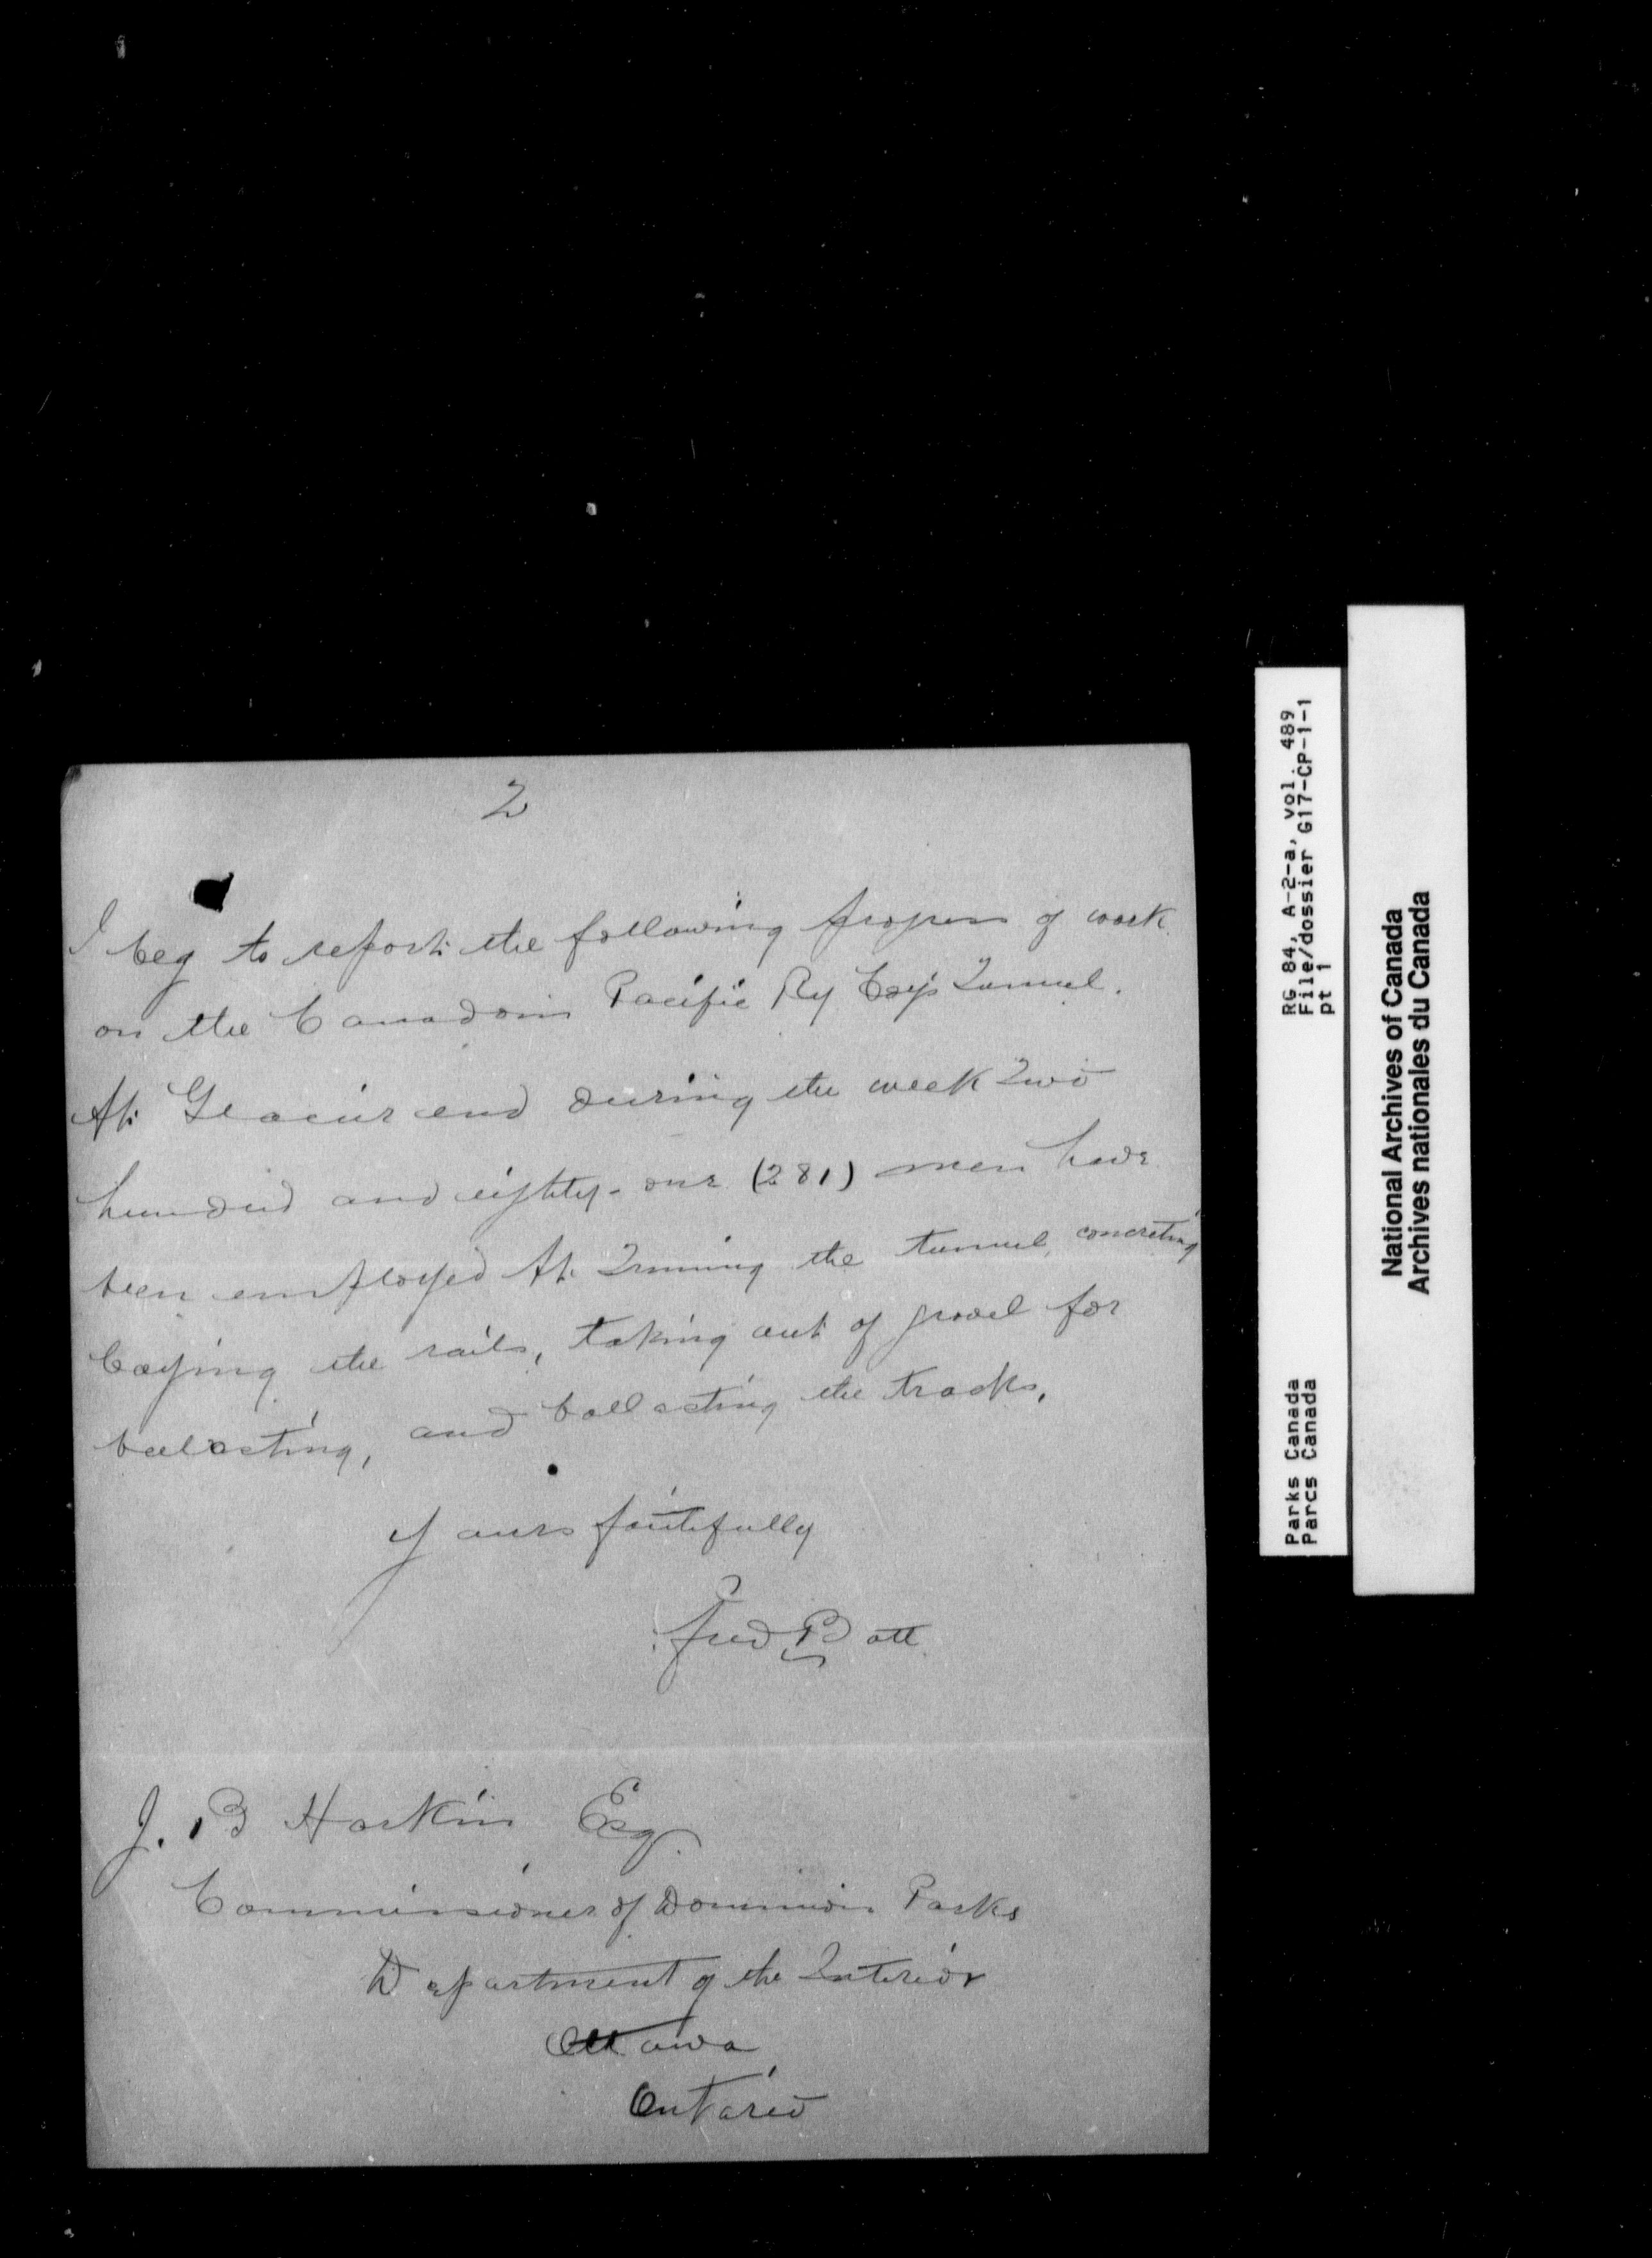 2
I beg to report the following progress of work
on the Canadain Pacific Ry Coy's Tunnel.
At Glacier end during the week Two
hundred and eighty-one (281) men have
been employed At Trimming the tunnel, concreting
Laying the rails, taking out of gravel for
ballasting, and ballasting the tracks.
Yours faithfully
Fred Batt
J. B Harkin Esq.
Commissioner of Dominion Parks
Department of the Interior
Ottawa
Ontario
Parks Canada
Parcs Canada
RG 84, A-2-a, vol. 489
File/dossier G17-CP-1-1
pt 1
National Archives of Canada
Archives nationales du Canada